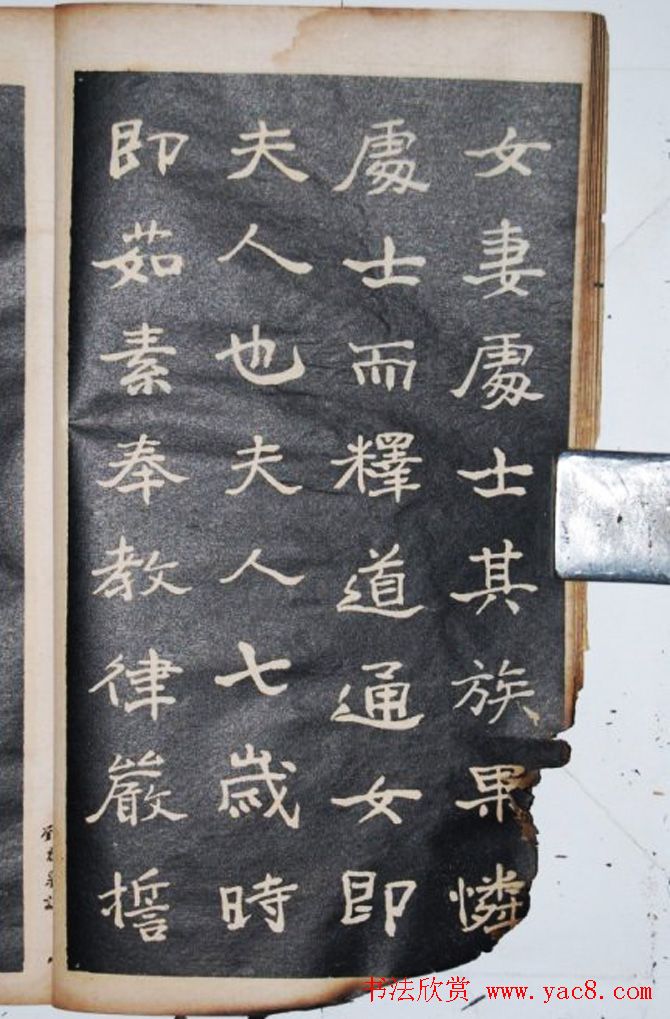 女妻處士其族果憐
處士而釋道通女即
夫人也夫人七歲時
即茹素奉教律嚴搢
书法欣赏 www.yac8.com